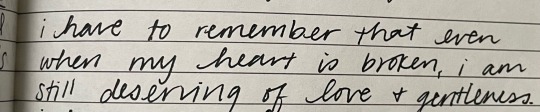 i have to remember that even
when my heart is broken, i am
still deserving of love + gentleness.